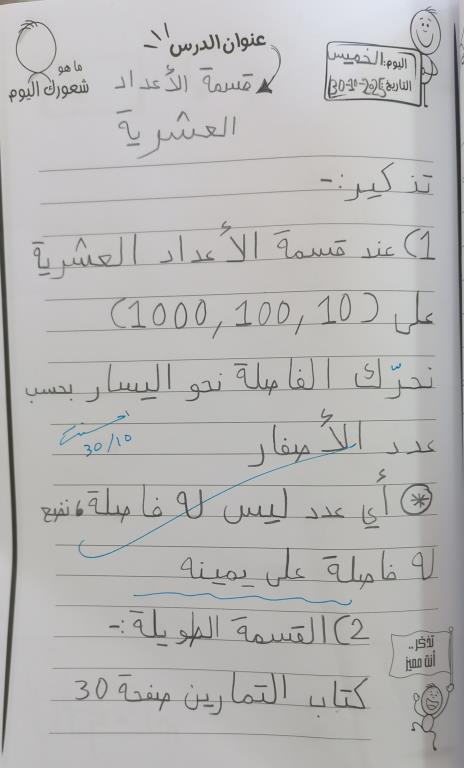 عنوان الدرس
اليوم: الخميس
التاريخ: 30-10-2025
ما هو
شعورك اليوم
قسمة الأعداد
العشرية
تذكير:-
1) عند قسمة الأعداد العشرية
على (10 ,100 ,1000)
نحرّك الفاصلة نحو اليسار بحسب
عدد الأصفار
30/10
* أي عدد ليس له فاصلة، نضع
له فاصلة على يمينه
2) القسمة الطويلة:-
تذكر..
أنة مميز
كتاب التمارين صفحة 30